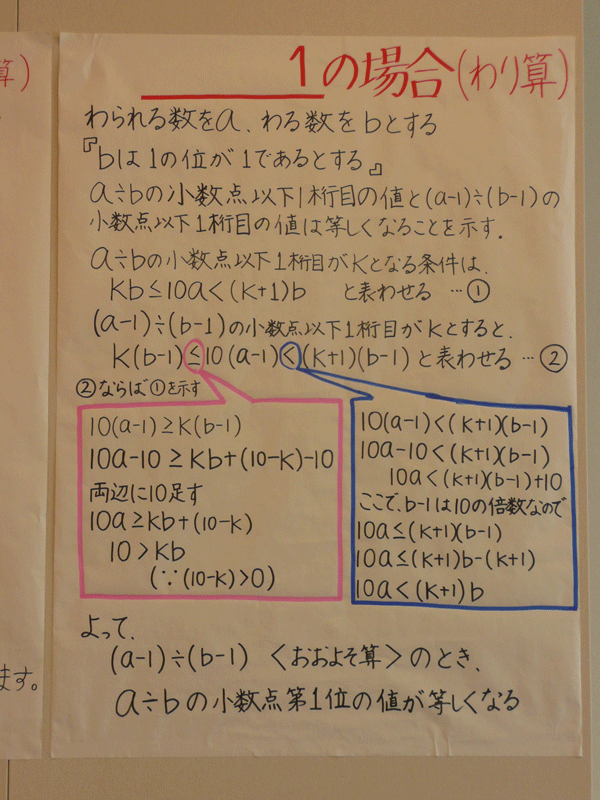 算)
ます。
1の場合(わり算)
わられる数をa、わる数をbとする
『bは1の位が1であるとする』
a÷bの小数点以下1桁目の値と(a-1)÷(b-1)の
小数点以下1桁目の値は等しくなることを示す.
a÷bの小数点以下1桁目がKとなる条件は、
Kb≤10a<(K+1)b と表わせる …①
(a-1)÷(b-1)の小数点以下1桁目がKとすると、
K(b-1)≤10(a-1)<(K+1)(b-1)と表わせる…②
②ならば①を示す
10(a-1)≥K(b-1)
10a-10≥Kb+(10-K)-10
両辺に10足す
10a≥Kb+(10-K)
10>Kb
(∵(10-K)>0)
10(a-1)<(K+1)(b-1)
10a-10<(K+1)(b-1)
10a<(K+1)(b-1)+10
ここで、b-1は10の倍数なので
10a≤(K+1)(b-1)
10a≤(K+1)b-(K+1)
10a<(K+1)b
よって、
(a-1)÷(b-1) <おおよそ算>のとき、
a÷bの小数点第1位の値が等しくなる